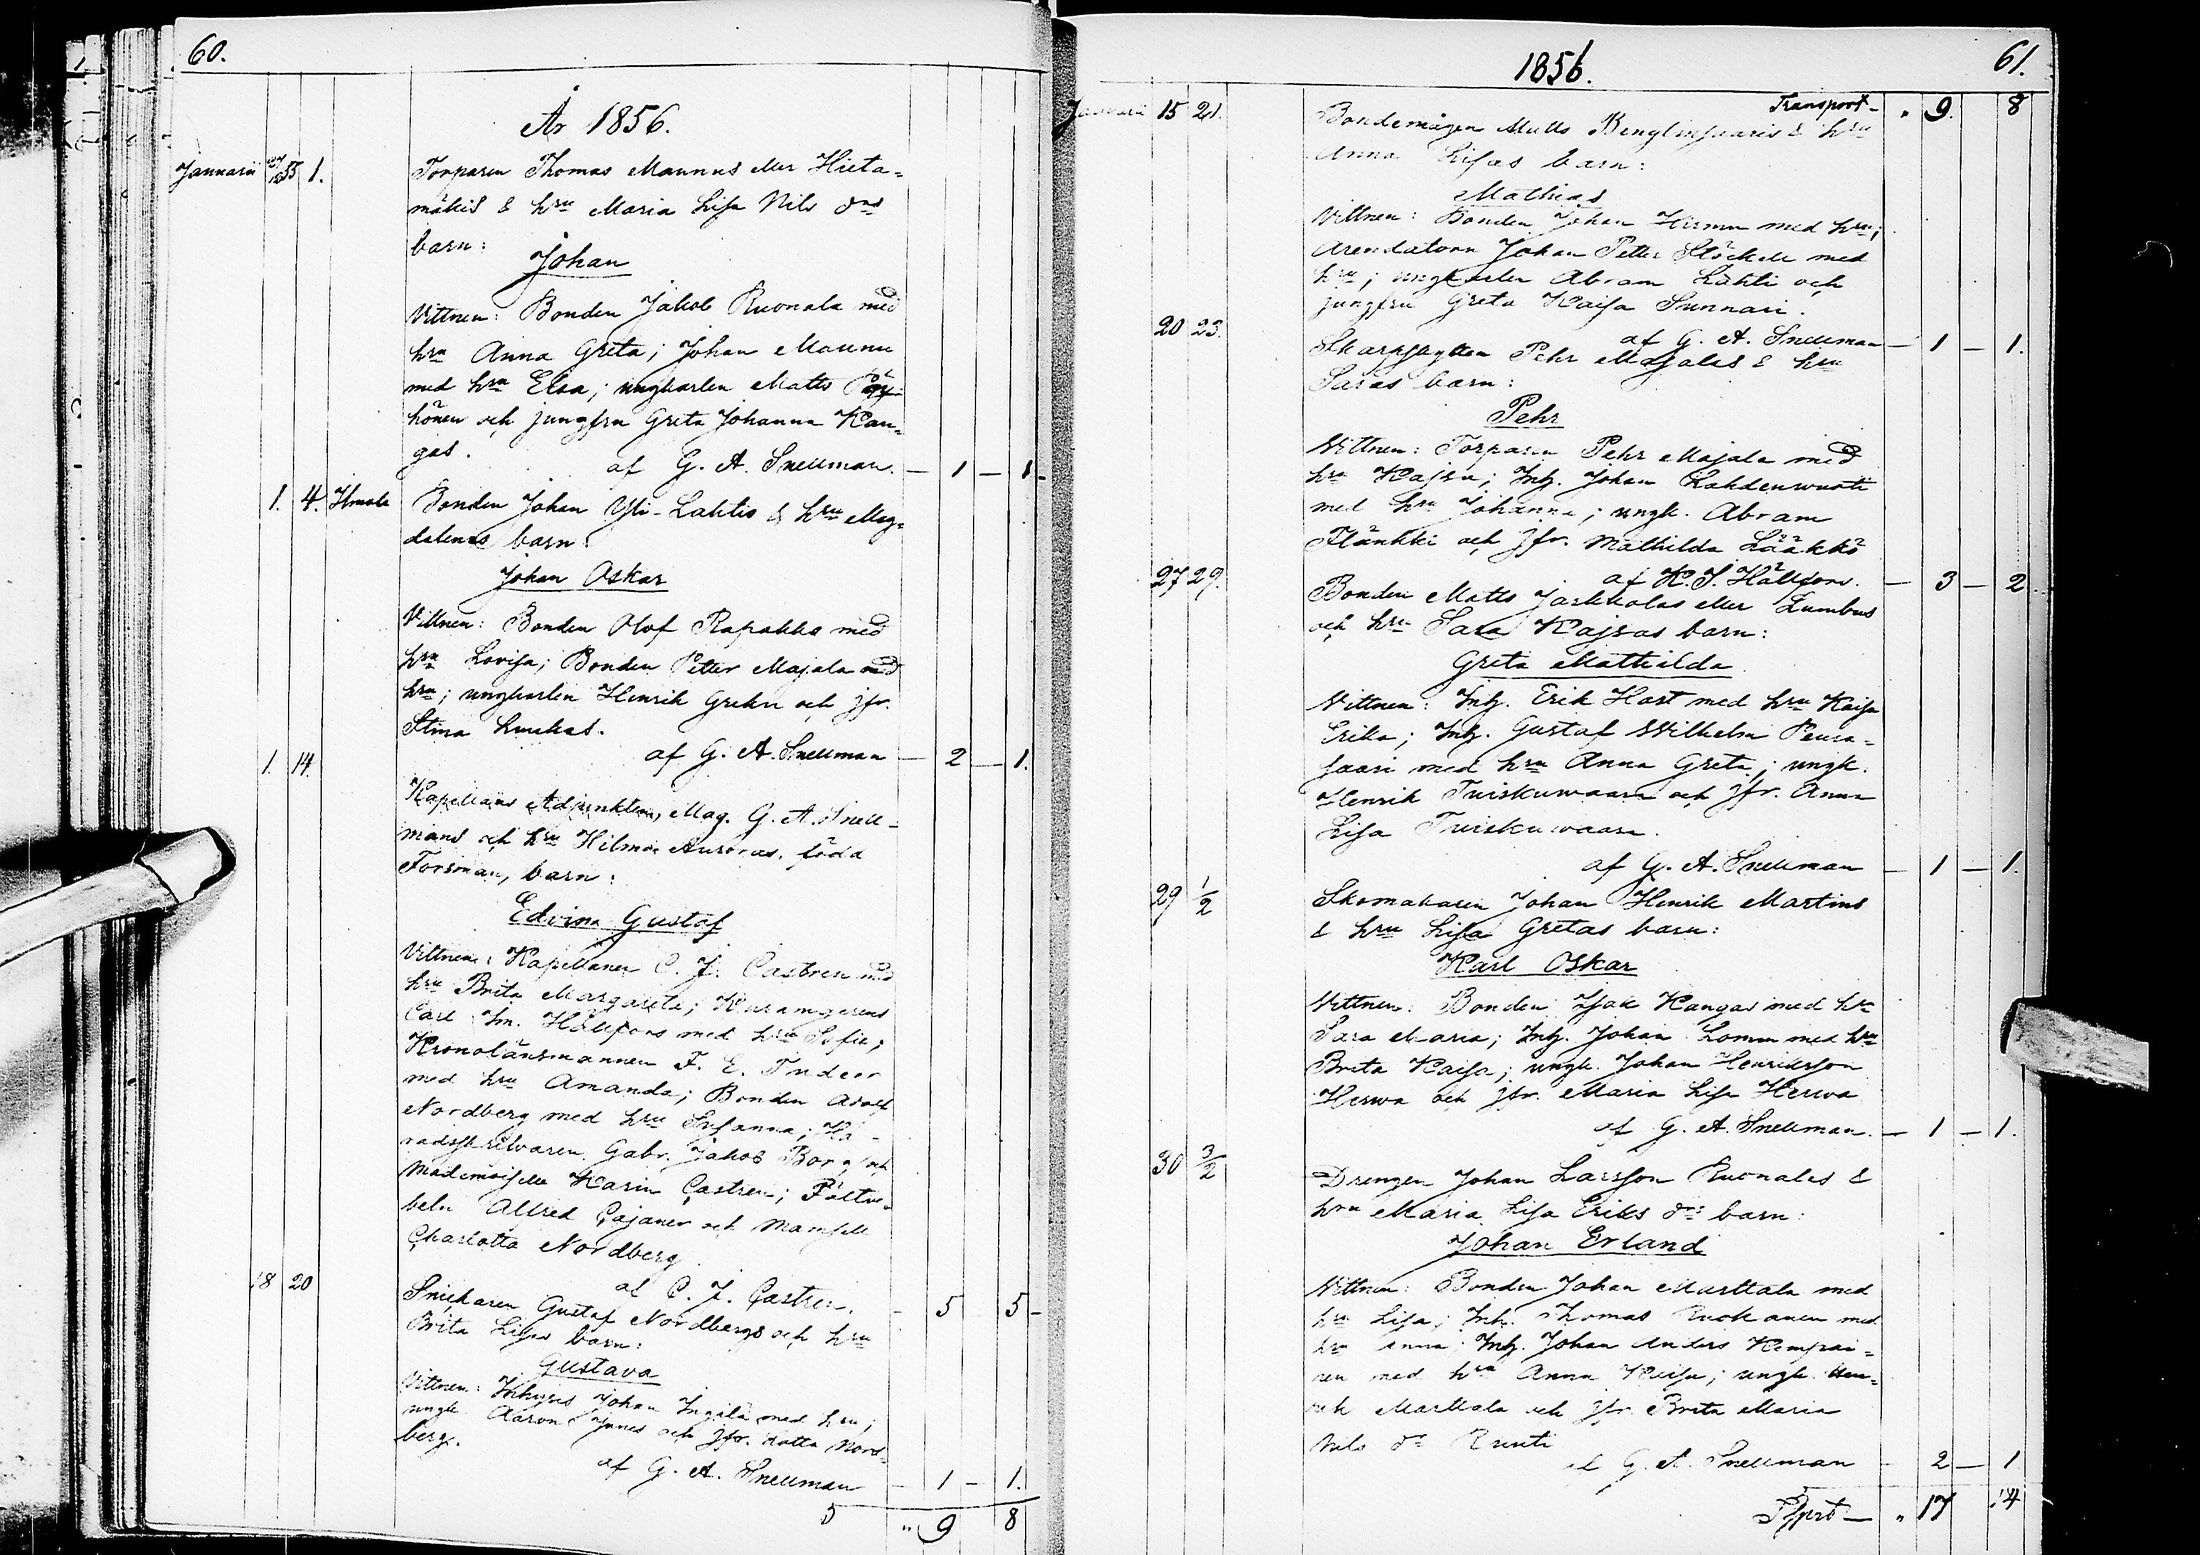 60.
År 1856.
Januarii 55 1. Torparen Thomas Maunus eller Hieta-
mäkis & hru Maria Lisa Nils drs
barn:
Johan
Vittnen: Bonden Jakob Ruonala med
hru Anna Greta; Johan Maunu
med hru Elsa; ungkarlen Matts
hönen och jungfru Greta Johanna Kan-
gas.
af G. A. Snellman. — 1 — 1.
1. 4. Bonden Johan Yli-Lahtis & hru Mag-
dalenas barn:
Johan Oskar
Vittnen: Bonden Olof Rapakko med
hru Lovisa; Bonden Petter Majala med
hru; ungkarlen Henrik Greku och jfr.
Stina Luukas.
af G. A. Snellman — 2 — 1.
1. 14. Kapellans Adjunkten, Mag. G. A. Snell-
mans och hru Hilma Auroras, född
Forsman, barn:
Edvin Gustaf
Vittnen: Kapellanen C. J. Castren med
hru Brita Margareta;
Carl Im. Hällfors med hru Sofie;
Kronolänsmannen F. E. Tudeer
med hru Amanda; Bonden Adolf
Nordberg med hru Susanna; Hä-
radsskrifvaren Gabr. Jakob Borg och
Mademoiselle Karin Castren; Fältve-
beln Alfred Cajaner och Mamsell
Charlotta Nordberg
af C. J. Castren. — 5 5 —
18 20 Snickaren Gustaf Nordbergs och hru
Brita Lisas barn:
Gustava
Vittnen: Inhyses Johan Ingilä med hru;
ungk. Aaron Junes och jfr. Katta Nord-
berg.
af G. A. Snellman — 1 — 1.
" 9 8
1856. 61.
Transport — " 9. 8
Januarii 15 21. Bondemågen Matts & hru
Anna Lisas barn:
Mathias
Vittnen: Bonden Johan med hru;
Arendatorn Johan Petter Stöckell med
hru; ungkarlen Abram Lahti och
jungfru Greta Kaisa Sunnari.
af G. A. Snellman — 1 — 1.
20 23. Skarpskytten Pehr Majalas & hru
Saras barn:
Pehr
Vittnen: Torparen Pehr Majala med
hru Kajsa; Inh. Johan Lahdenwuoti
med hru Johanna; ungk. Abram
Flänkki och jfr. Mathilda Lääkkö
af K. I. Hällfors. — 3 — 2
27 29. Bonden Matts Jaakkolas eller Lumbus
och hru Sara Kajsas barn:
Greta Mathilda
Vittnen: Inh. Erik Hast med hru Kaisa
Erika; Inh. Gustaf Wilhelm Peura-
saari med hru Anna Greta; ungk.
Henrik Tuiskuwaara och jfr. Anna
Lisa Tuiskuwaara.
af G. A. Snellman — 1 — 1.
29 1/2 Skomakaren Johan Henrik Martins
& hru Lisa Gretas barn:
Karl Oskar
Vittnen: Bonden Isak Kangas med hru
Sara Maria; Inh. Johan Lomm med hru
Brita Kaisa; ungk. Johan Henriksson
Herwa och jfr. Maria Lisa Herwa
af G. A. Snellman. — 1 — 1.
30 3/2 Drengen Johan Larsson Ruonalas &
hru Maria Lisa Eriks drs barn:
Johan Erland
Vittnen: Bonden Johan Marttala med
hru Lisa; Inh. Thomas Ruokanen med
hru Anna; Inh. Johan Anders Kempai-
nen med hru Anna Kaisa; ungk. Hen-
rik Marttala och jfr. Brita Maria
Nils dr Ruuti
af G. A. Snellman — 2 — 1
Trsprt — " 17 14